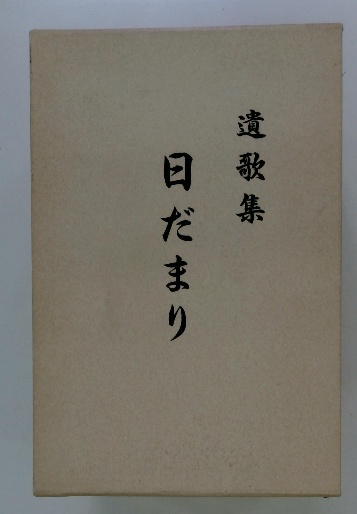 遺歌集
日だまり